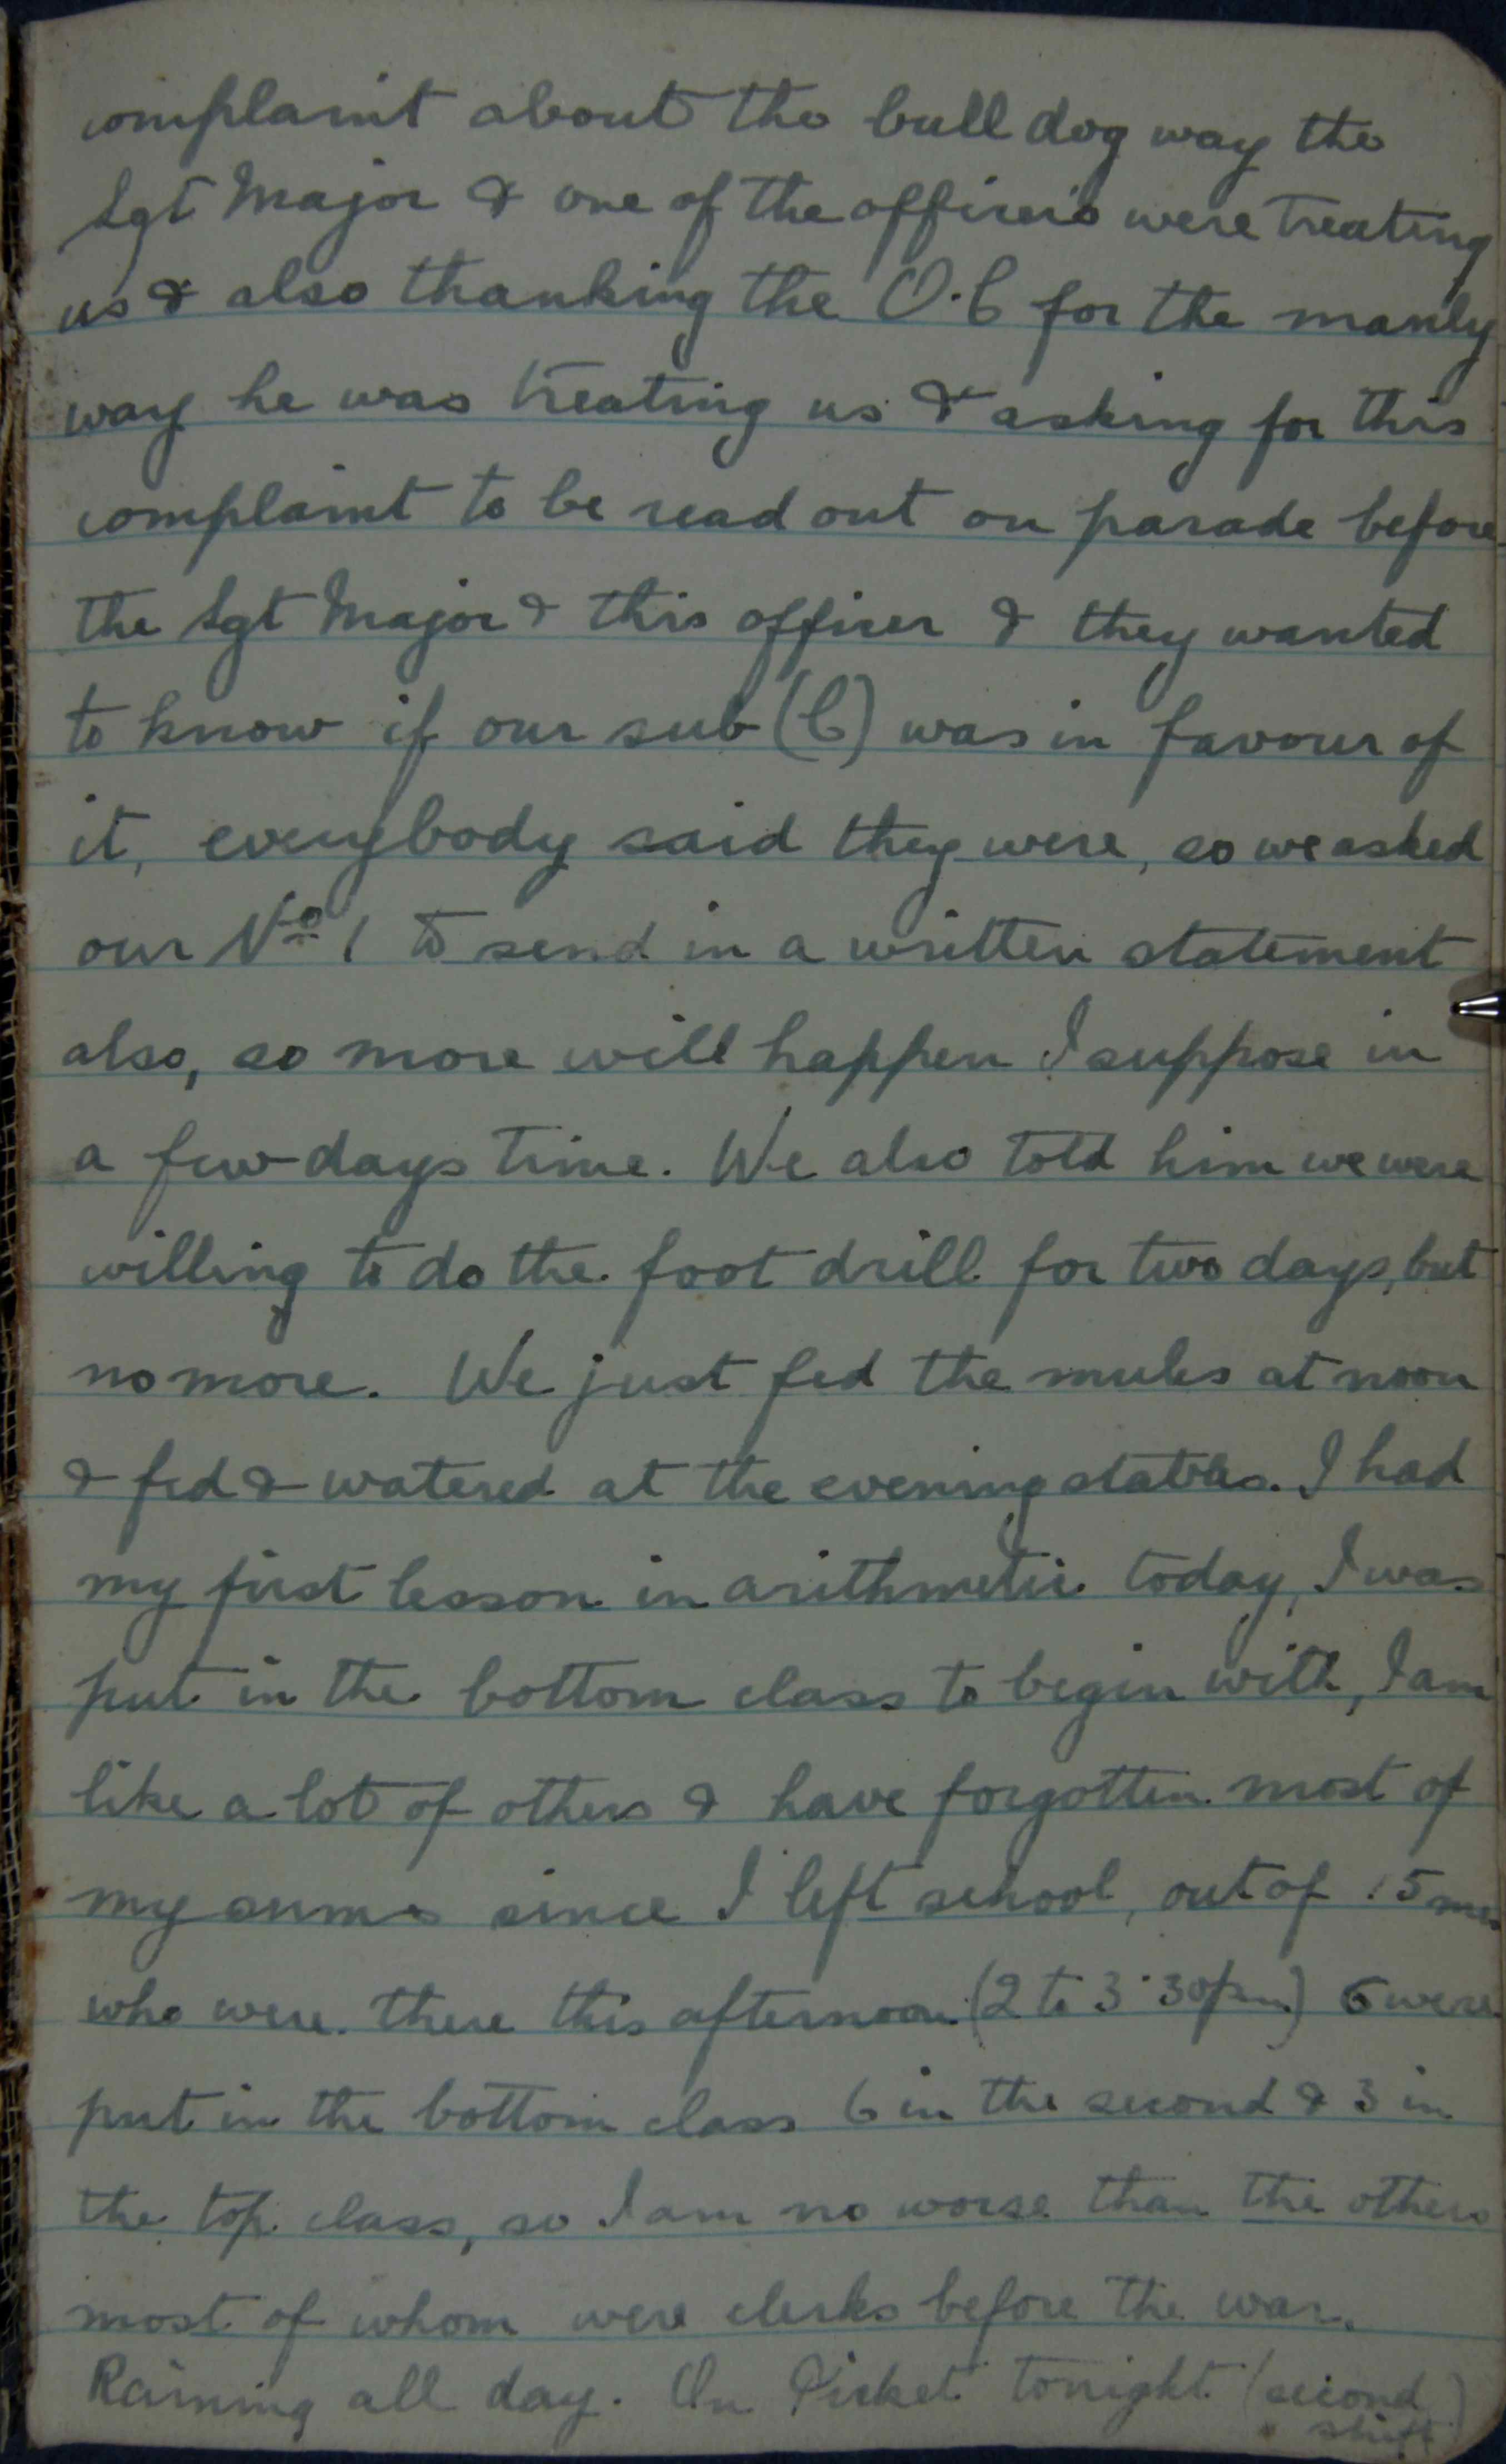 complaint about the bull dog way the
Sgt Major & one of the officers were treating
us & also thanking the O.C for the manly
way he was treating us & asking for this
complaint to be read out on parade before
the Sgt Major & this officer & they wanted
to know if our sub (C) was in favour of
it, everybody said they were, so we asked
our No 1 to send in a written statement
also, so more will happen I suppose in
a few days time. We also told him we were
willing to do the foot drill for two days, but
no more. We just fed the mules at noon
& fed & watered at the evening stables. I had
my first lesson in arithmetic today, I was
put in the bottom class to begin with, I am
like a lot of others & have forgotten most of
my sums since I left school, out of 15 men
who were there this afternoon (2 to 3.30pm) 6 were
put in the bottom class 6 in the second & 3 in
the top class, so I am no worse than the others
most of whom were clerks before the war.
Raining all day. On Picket tonight (second
shift)